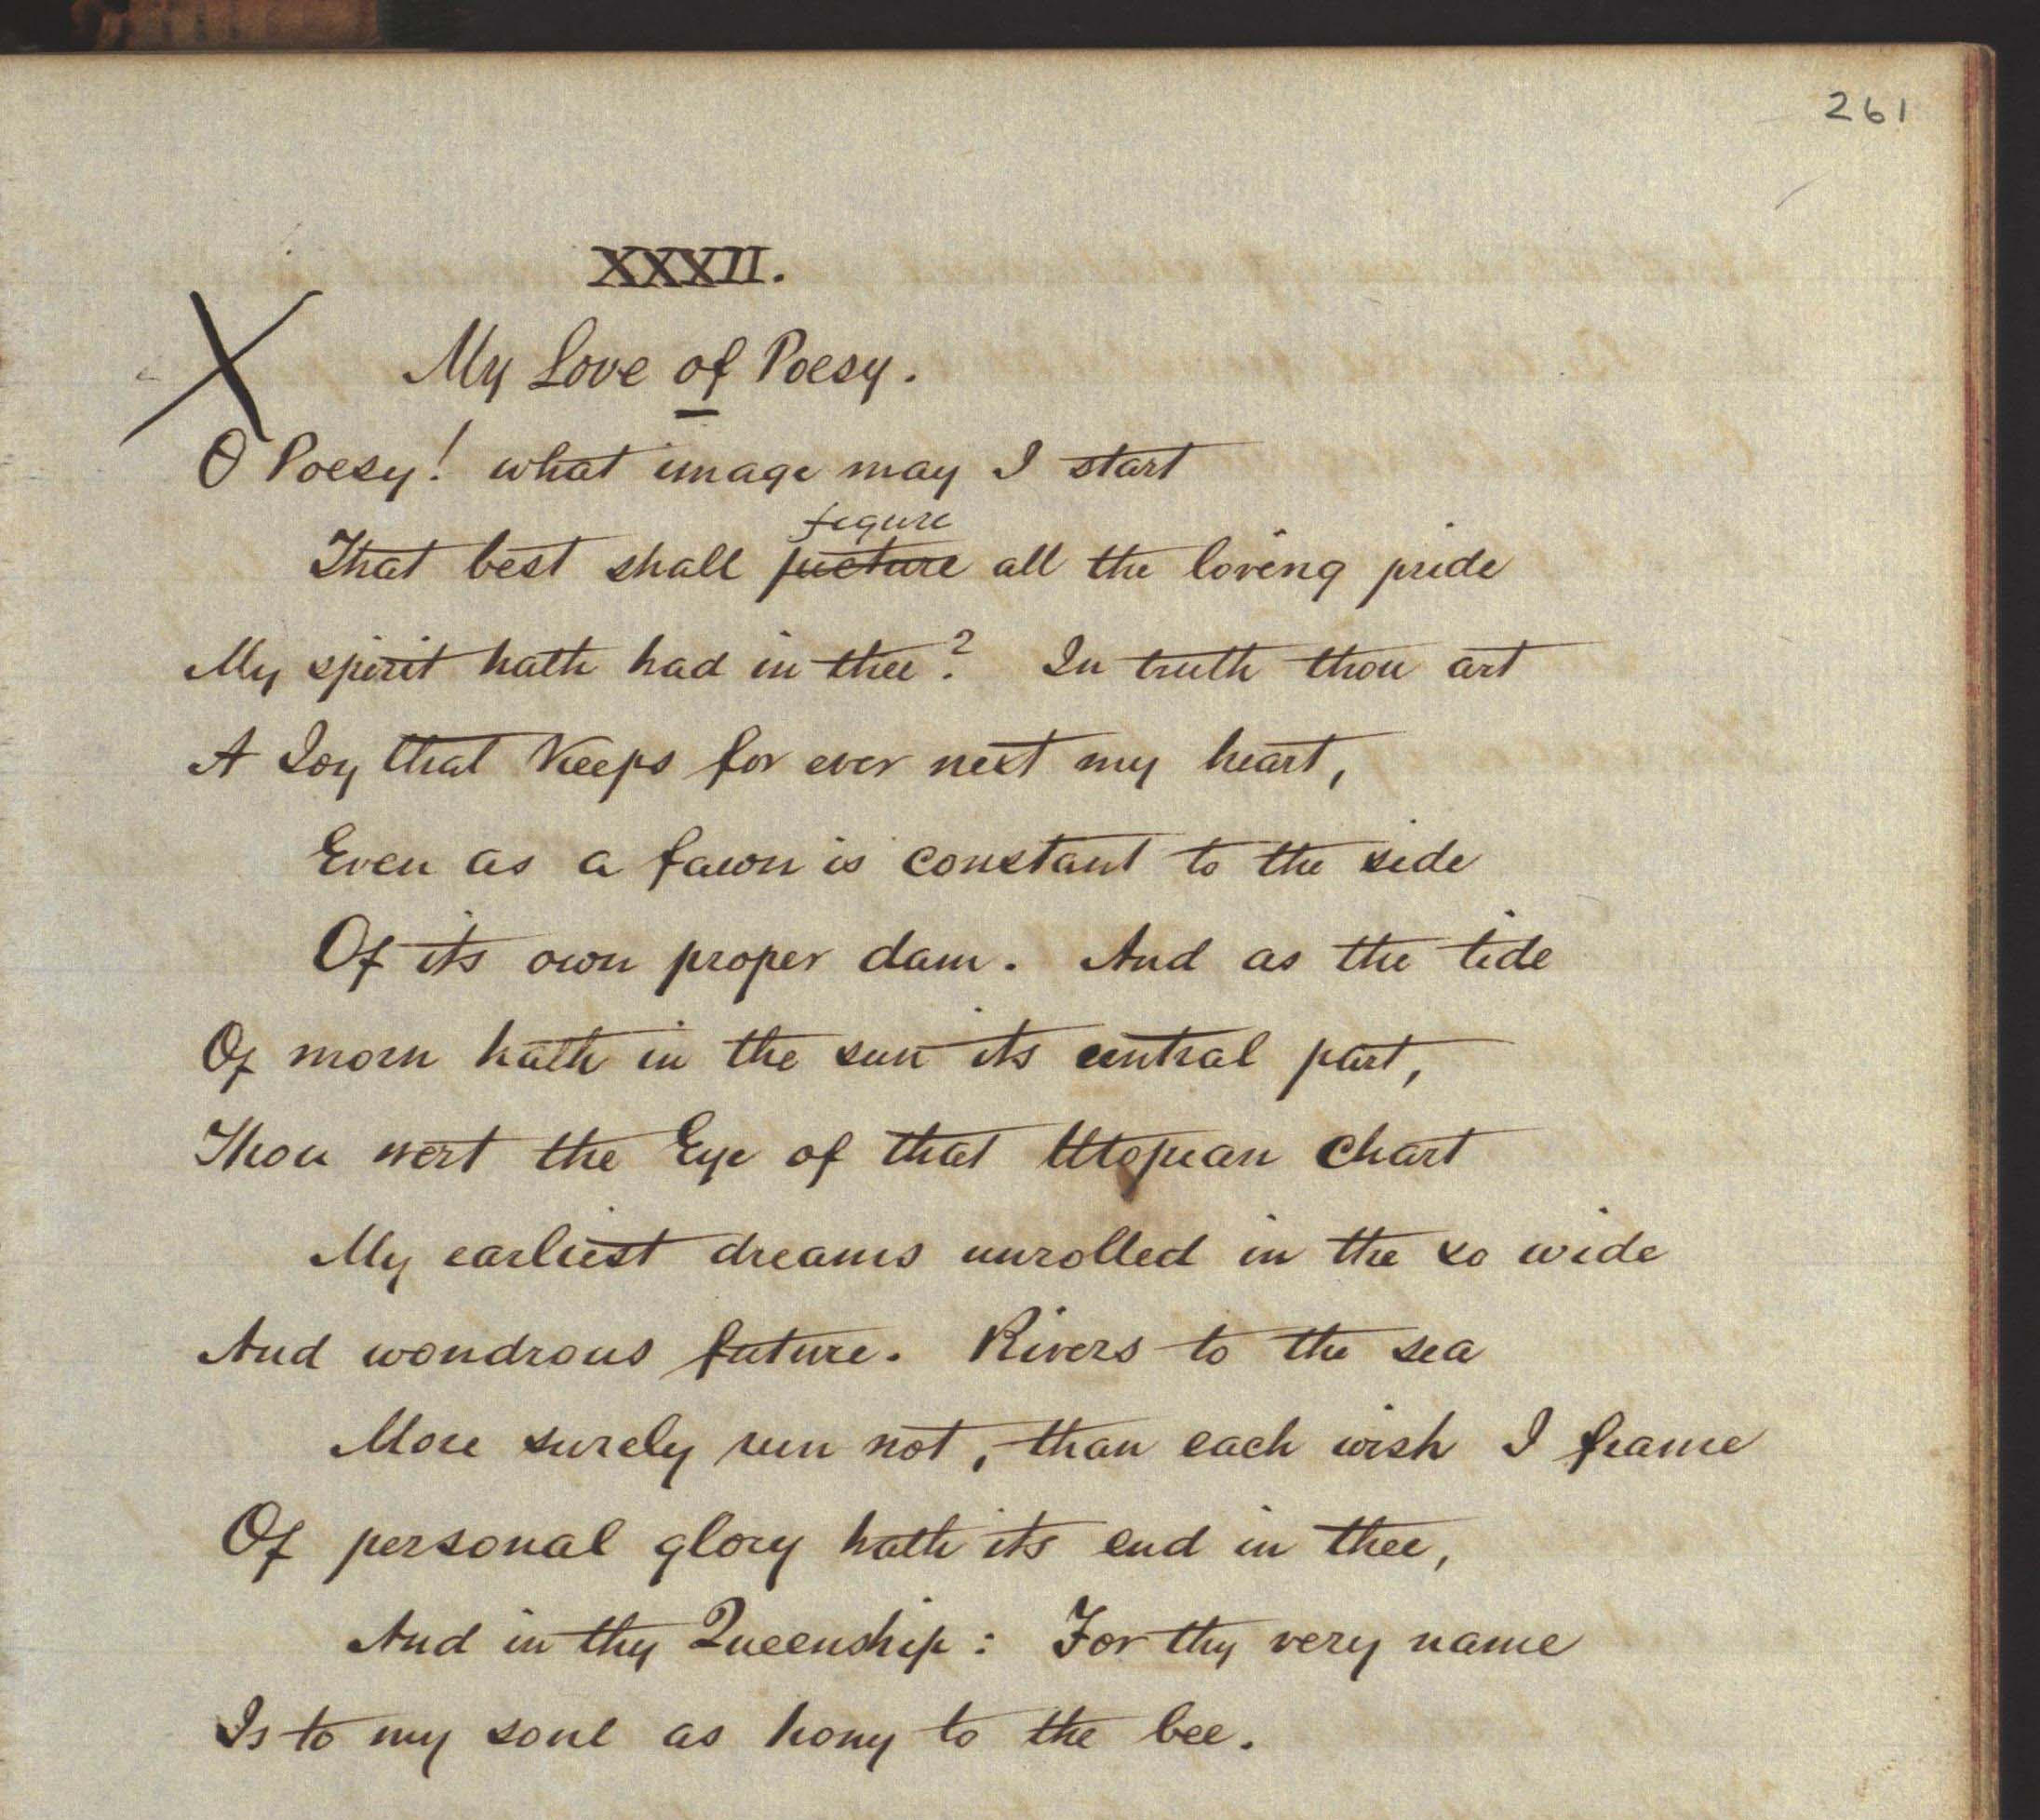 261
XXXII.
My Love of Poesy.
O Poesy! what image may I start
figure
That best shall picture all the loving pride
My spirit hath had in thee? In truth thou art
A Joy that keeps for ever next my heart,
Even as a fawn is constant to the side
Of its own proper dam. And as the tide
Of morn hath in the sun its central part,
Thou wert the Eye of that Utopian Chart
My earliest dreams unrolled in the so wide
And wondrous future. Rivers to the sea
More surely run not, than each wish I frame
Of personal glory hath its end in thee,
And in thy Queenship: For thy very name
Is to my soul as hony to the bee.